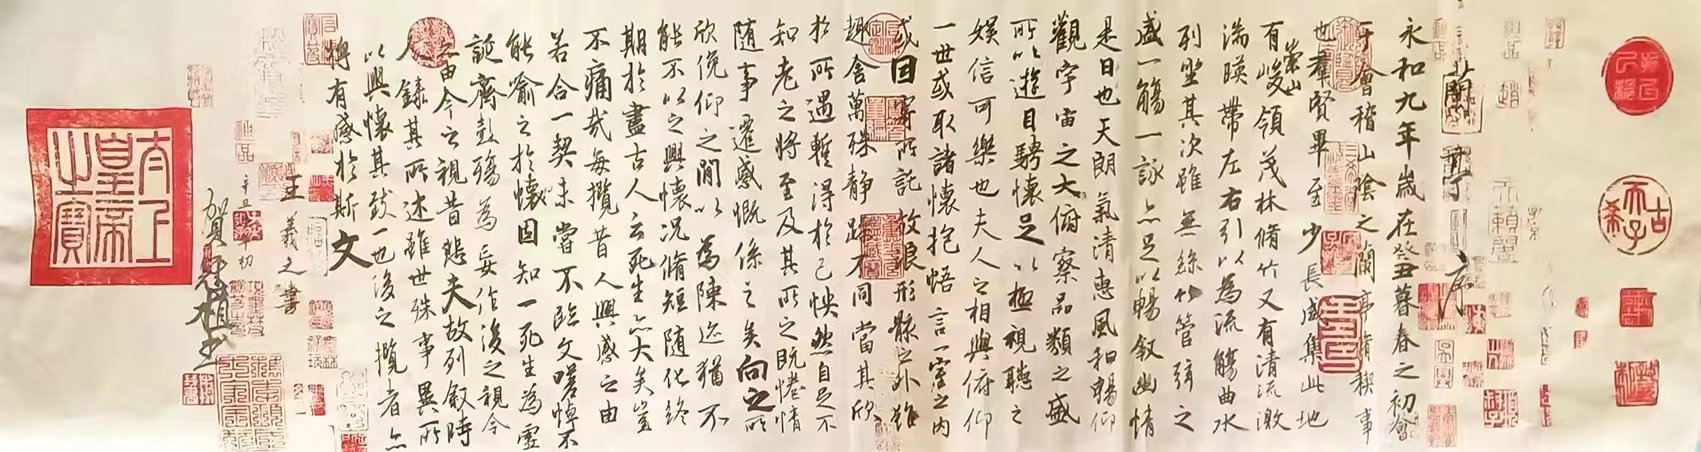 古希天子
蘭亭序
永和九年歲在癸丑暮春之初會
于會稽山陰之蘭亭脩稧事
也羣賢畢至少長咸集此地
有崇山峻領茂林脩竹又有清流激
湍暎帶左右引以為流觴曲水
列坐其次雖無絲竹管弦之
盛一觴一詠亦足以暢叙幽情
是日也天朗氣清惠風和暢仰
觀宇宙之大俯察品類之盛
所以遊目騁懷足以極視聽之
娛信可樂也夫人之相與俯仰
一世或取諸懷抱悟言一室之內
或因寄所託放浪形骸之外雖
趣舍萬殊静躁不同當其欣
於所遇暫得於己怏然自足不
知老之將至及其所之既惓情
隨事遷感慨係之矣向之所
欣俛仰之間以為陳迹猶不
能不以之興懷況脩短隨化終
期於盡古人云死生亦大矣豈
不痛哉每攬昔人興感之由
若合一契未嘗不臨文嗟悼不
能喻之於懷固知一死生為虛
誕齊彭殤為妄作後之視今
亦由今之視昔悲夫故列叙時
人錄其所述雖世殊事異所
以興懷其致一也後之攬者亦
將有感於斯文
王羲之書
太上皇帝之寶